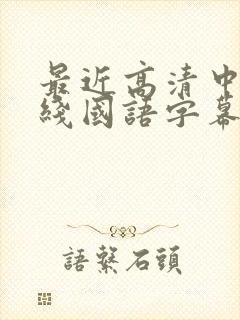 最近高清中
綫國語字幕
語繫石頭